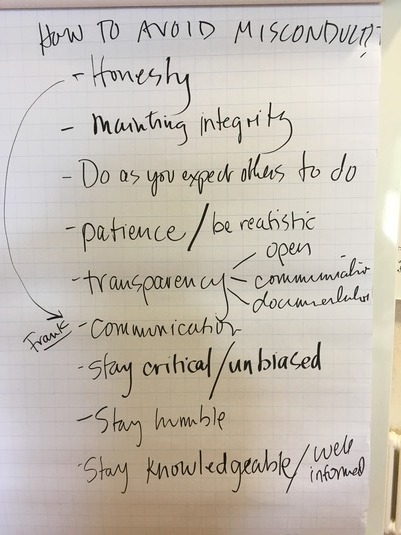 HOW TO AVOID MISCONDUCT?
- Honesty
- Mainting integrity
- Do as you expect others to do
- patience / be realistic
- transparency open
communication
documentation
Frank - communication
- Stay critical / unbiased
- Stay humble
- Stay knowledgeable / well informed